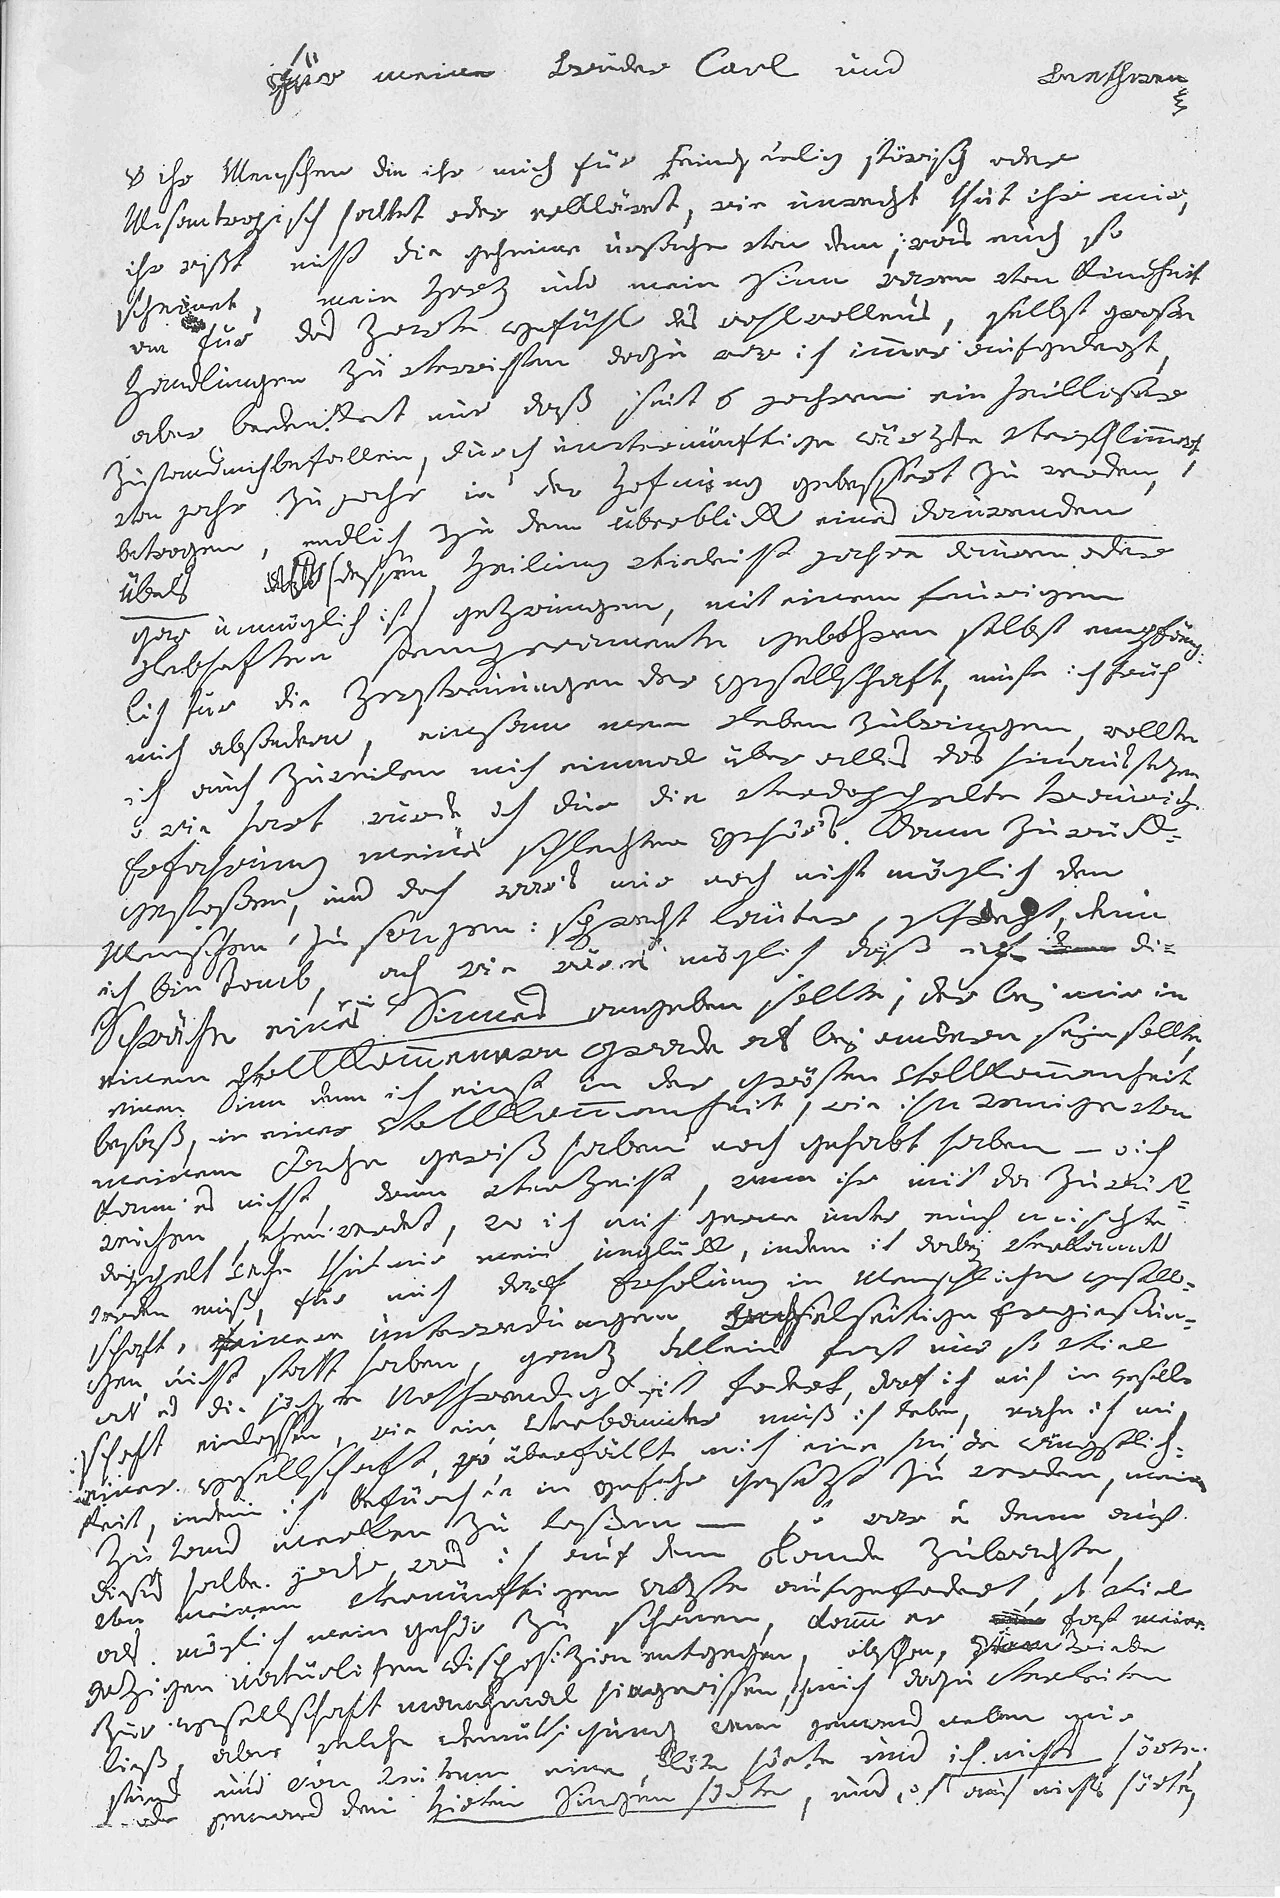 für meine Brüder Carl und Beethowen
o ihr Menschen die ihr mich für Feindseelig störisch oder
Misantropisch haltet oder erkläret, wie unrecht thut ihr mir,
ihr wißt nicht die geheime ursache von dem; was euch so
scheinet, mein Herz und mein Sinn waren von Kindheit
an für das Zarte gefühl des wohlwollens, selbst große
Handlungen zu verrichten dazu war ich immer aufgelegt,
aber bedenket nur daß seit 6 jahren ein heilloser
Zustand mich befallen, durch unvernünftige ärzte verschlimmert,
von jahr zu jahr in der Hofnung gebessert zu werden,
betrogen, endlich zu dem überblick eines daurenden
Übels (dessen Heilung vieleicht jahre dauren oder
gar unmöglich ist) gezwungen, mit einem feurigen
lebhaften Temperamente gebohren selbst empfäng-
lich für die Zerstreuungen der Gesellschaft, muste ich früh
mich absondern, einsam mein Leben zubringen, wollte
ich auch zuweilen mich einmal über alles das hinaussezen
o wie hart wurde ich dur die verdoppelte traurige
Erfahrung meines schlechten Gehör's dann zurück-
gestoßen, und doch war's mir noch nicht möglich den
Menschen zu sagen: sprecht lauter, schreyt, denn
ich bin taub, ach wie wär es möglich daß ich die
Schwäche eines Sinnes angeben sollte; der bej mir in
einem Vollkommenern Grade als bej andern seyn sollte,
einen Sinn denn ich einst in der grösten Vollkommenheit
besaß, in einer Vollkommenheit, wie ihn wenige von
meinem Fache gewiß haben noch gehabt haben – o ich
kann es nicht, drum verzeiht, wenn ihr mich da zurück-
weichen sehen werdet, wo ich mich gerne unter euch mischte
doppelt Wehe thut mir mein unglück, indem ich dabej verkannt
werden muß, für mich darf Erholung in Menschlicher Gesell-
schaft, feinere unterredungen, Wechselseitige Ergießun-
gen nicht statt haben, ganz allein fast nur so viel
als es die höchste Nothwendigkeit fodert, darf ich mich in gesell-
schaft einlassen, wie ein Verbannter muß ich leben, nahe ich mich
einer Gesellschaft, so überfällt mich eine heiße ängstlich-
keit, indem ich befürchte in Gefahr gesezt zu werden, meinen
Zustand merken zu laßen – so war es denn auch
dieses halbe jahr, was ich auf dem Lande zubrachte,
von meinem Vernünftigen Arzte aufgefodert, so viel
als möglich mein Gehör zu schonen, kamm er fast meiner
jezigen natürlichen Disposizion entgegen, obschon, vom Triebe
zur Gesellschaft manchmal hingerissen, ich mich dazu verleiten
ließ, aber welche Demüthigung wenn jemand neben mir
stund und von weitem eine Flöte hörte und ich nichts hörte.
oder jemand den Hirten Singen hörte, und ich auch nichts hörte,